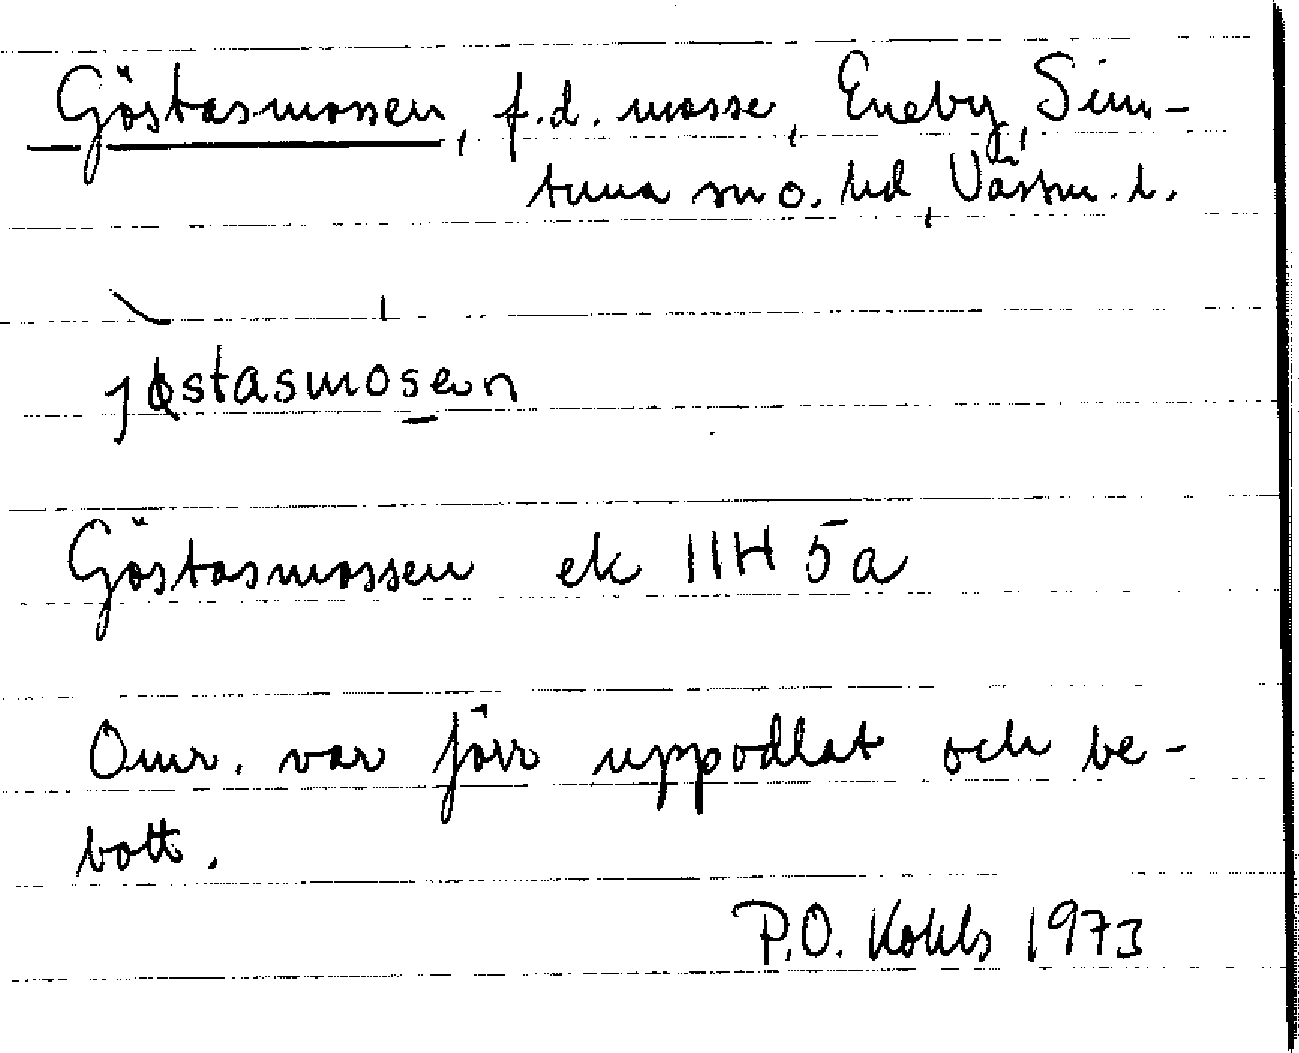 Göstasmossen, f.d. mosse, Eneby, Sim-
tuna sn o. hd, Västm. l.
jøstasmosen
Göstasmossen ek 11H 5a
Omr. var förr uppodlat och be-
bott.
P.O. Kohls 1973